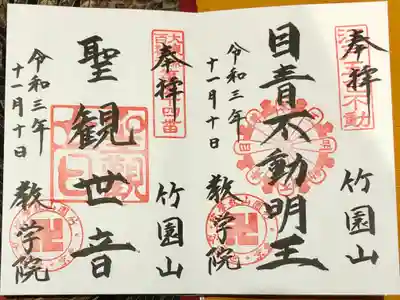 奉拝
目青不動明王
竹園山
教学院
令和三年
十一月十日
奉拝
聖観世音
竹園山
教学院
令和三年
十一月十日